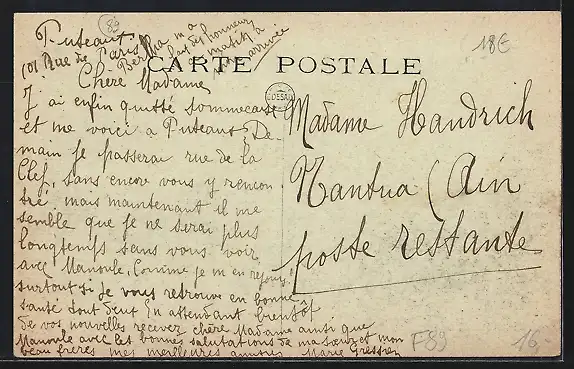 89
18E
Puteaux
101 Rue de Paris
CARTE POSTALE
arrivée
Chère Madame
J ai enfin quitté Sommecaise
et me voici a Puteaux De-
main je passerai rue de la
Clef, sans encore vous y rencon
tré, mais maintenant il me
semble que je ne serai plus
longtemps sans vous voir
avec Manoule. Comme je m en rejouis!
surtout si je vous retrouve en bonne
santé tout deux En attendant bientôt
de vos nouvelles recevez chère Madame ainsi que
Manoule avec les bonnes salutations de ma soeur et mon
beau frères mes meilleures amitiés Marie
Madame Handrich
Nantua (Ain
poste restante
F89
16